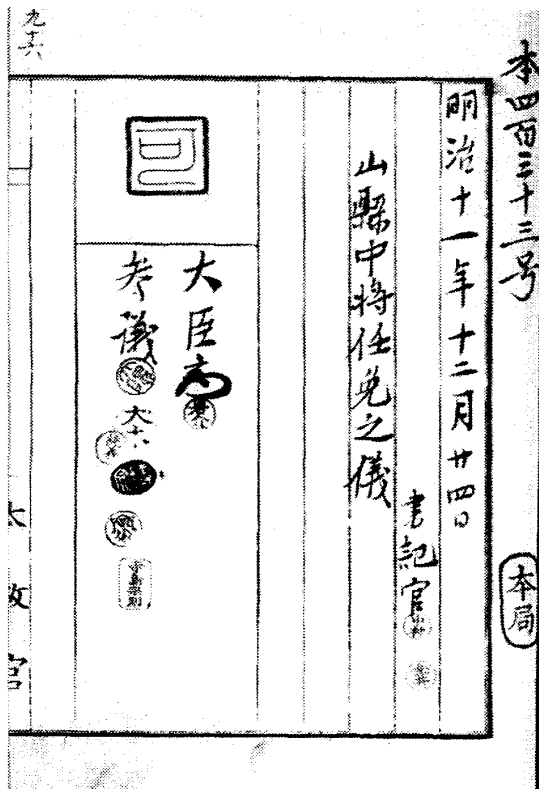 本四百三十三号
本局
明治十一年十二月廿四日
書記官
山縣中将任免之儀
可
大臣
参議
太政官
九十六